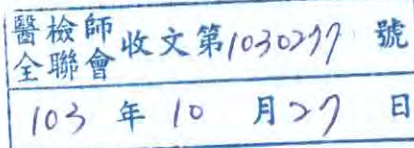 醫檢師全聯會收文第1030277號
103年10月27日